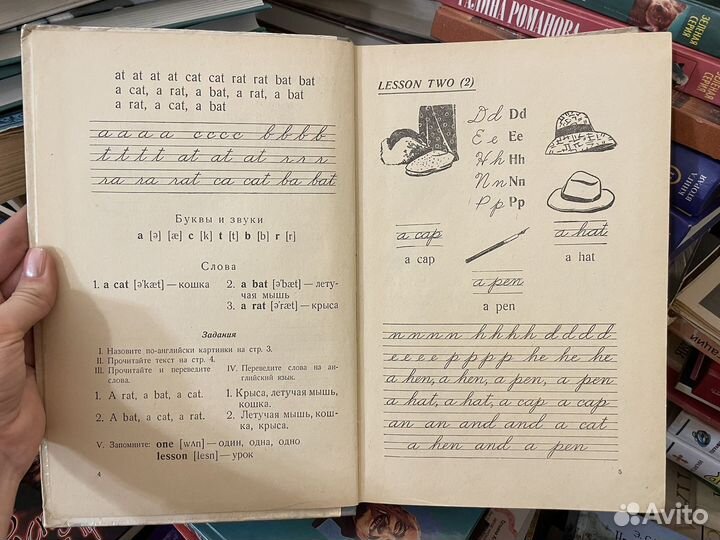 at at at at cat cat rat rat bat bat
a cat, a rat, a bat, a rat, a bat
a rat, a cat, a bat
a a a a c c c c b b b b
t t t t at at at r r r
ra ra rat ca cat ba bat
Буквы и звуки
a [ə] [æ] c [k] t [t] b [b] r [r]
Слова
1. a cat [ə'kæt] — кошка
2. a bat [ə'bæt] — летучая мышь
3. a rat [ə'ræt] — крыса
Задания
I. Назовите по-английски картинки на стр. 3.
II. Прочитайте текст на стр. 4.
III. Прочитайте и переведите слова.
1. A rat, a bat, a cat.
2. A bat, a cat, a rat.
IV. Переведите слова на английский язык.
1. Крыса, летучая мышь, кошка.
2. Летучая мышь, кошка, крыса.
V. Запомните: one [wʌn] — один, одна, одно
lesson [lesn] — урок
4
LESSON TWO (2)
D d Dd
E e Ee
H h Hh
N n Nn
P p Pp
a cap
a cap
a hat
a hat
a pen
a pen
n n n n h h h h d d d d
e e e e p p p p he he he
a hen, a hen, a pen, a pen
a hat, a hat, a cap a cap
an an and and a cat
a hen and a pen
5
ГАЛИНА РОМАНОВА
ЗЕЛЕНАЯ СЕРИЯ
КНИГА ВТОРАЯ
Avito